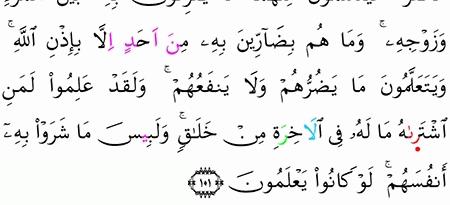 وَزَوْجِهِۦۚ وَمَا هُم بِضَآرِّينَ بِهِۦ مِنَ اَحَدٍ اِلَّا بِإِذْنِ ٱللَّهِۚ
وَيَتَعَلَّمُونَ مَا يَضُرُّهُمْ وَلَا يَنفَعُهُمْۚ وَلَقَدْ عَلِمُوا۟ لَمَنِ
ٱشْتَرىٰهُ مَا لَهُۥ فِى ٱلَاخِرَةِ مِنْ خَلَٰقٍۚ وَلَبِيسَ مَا شَرَوْا۟ بِهِۦٓ
أَنفُسَهُمْۚ لَوْ كَانُوا۟ يَعْلَمُونَ ١٠١